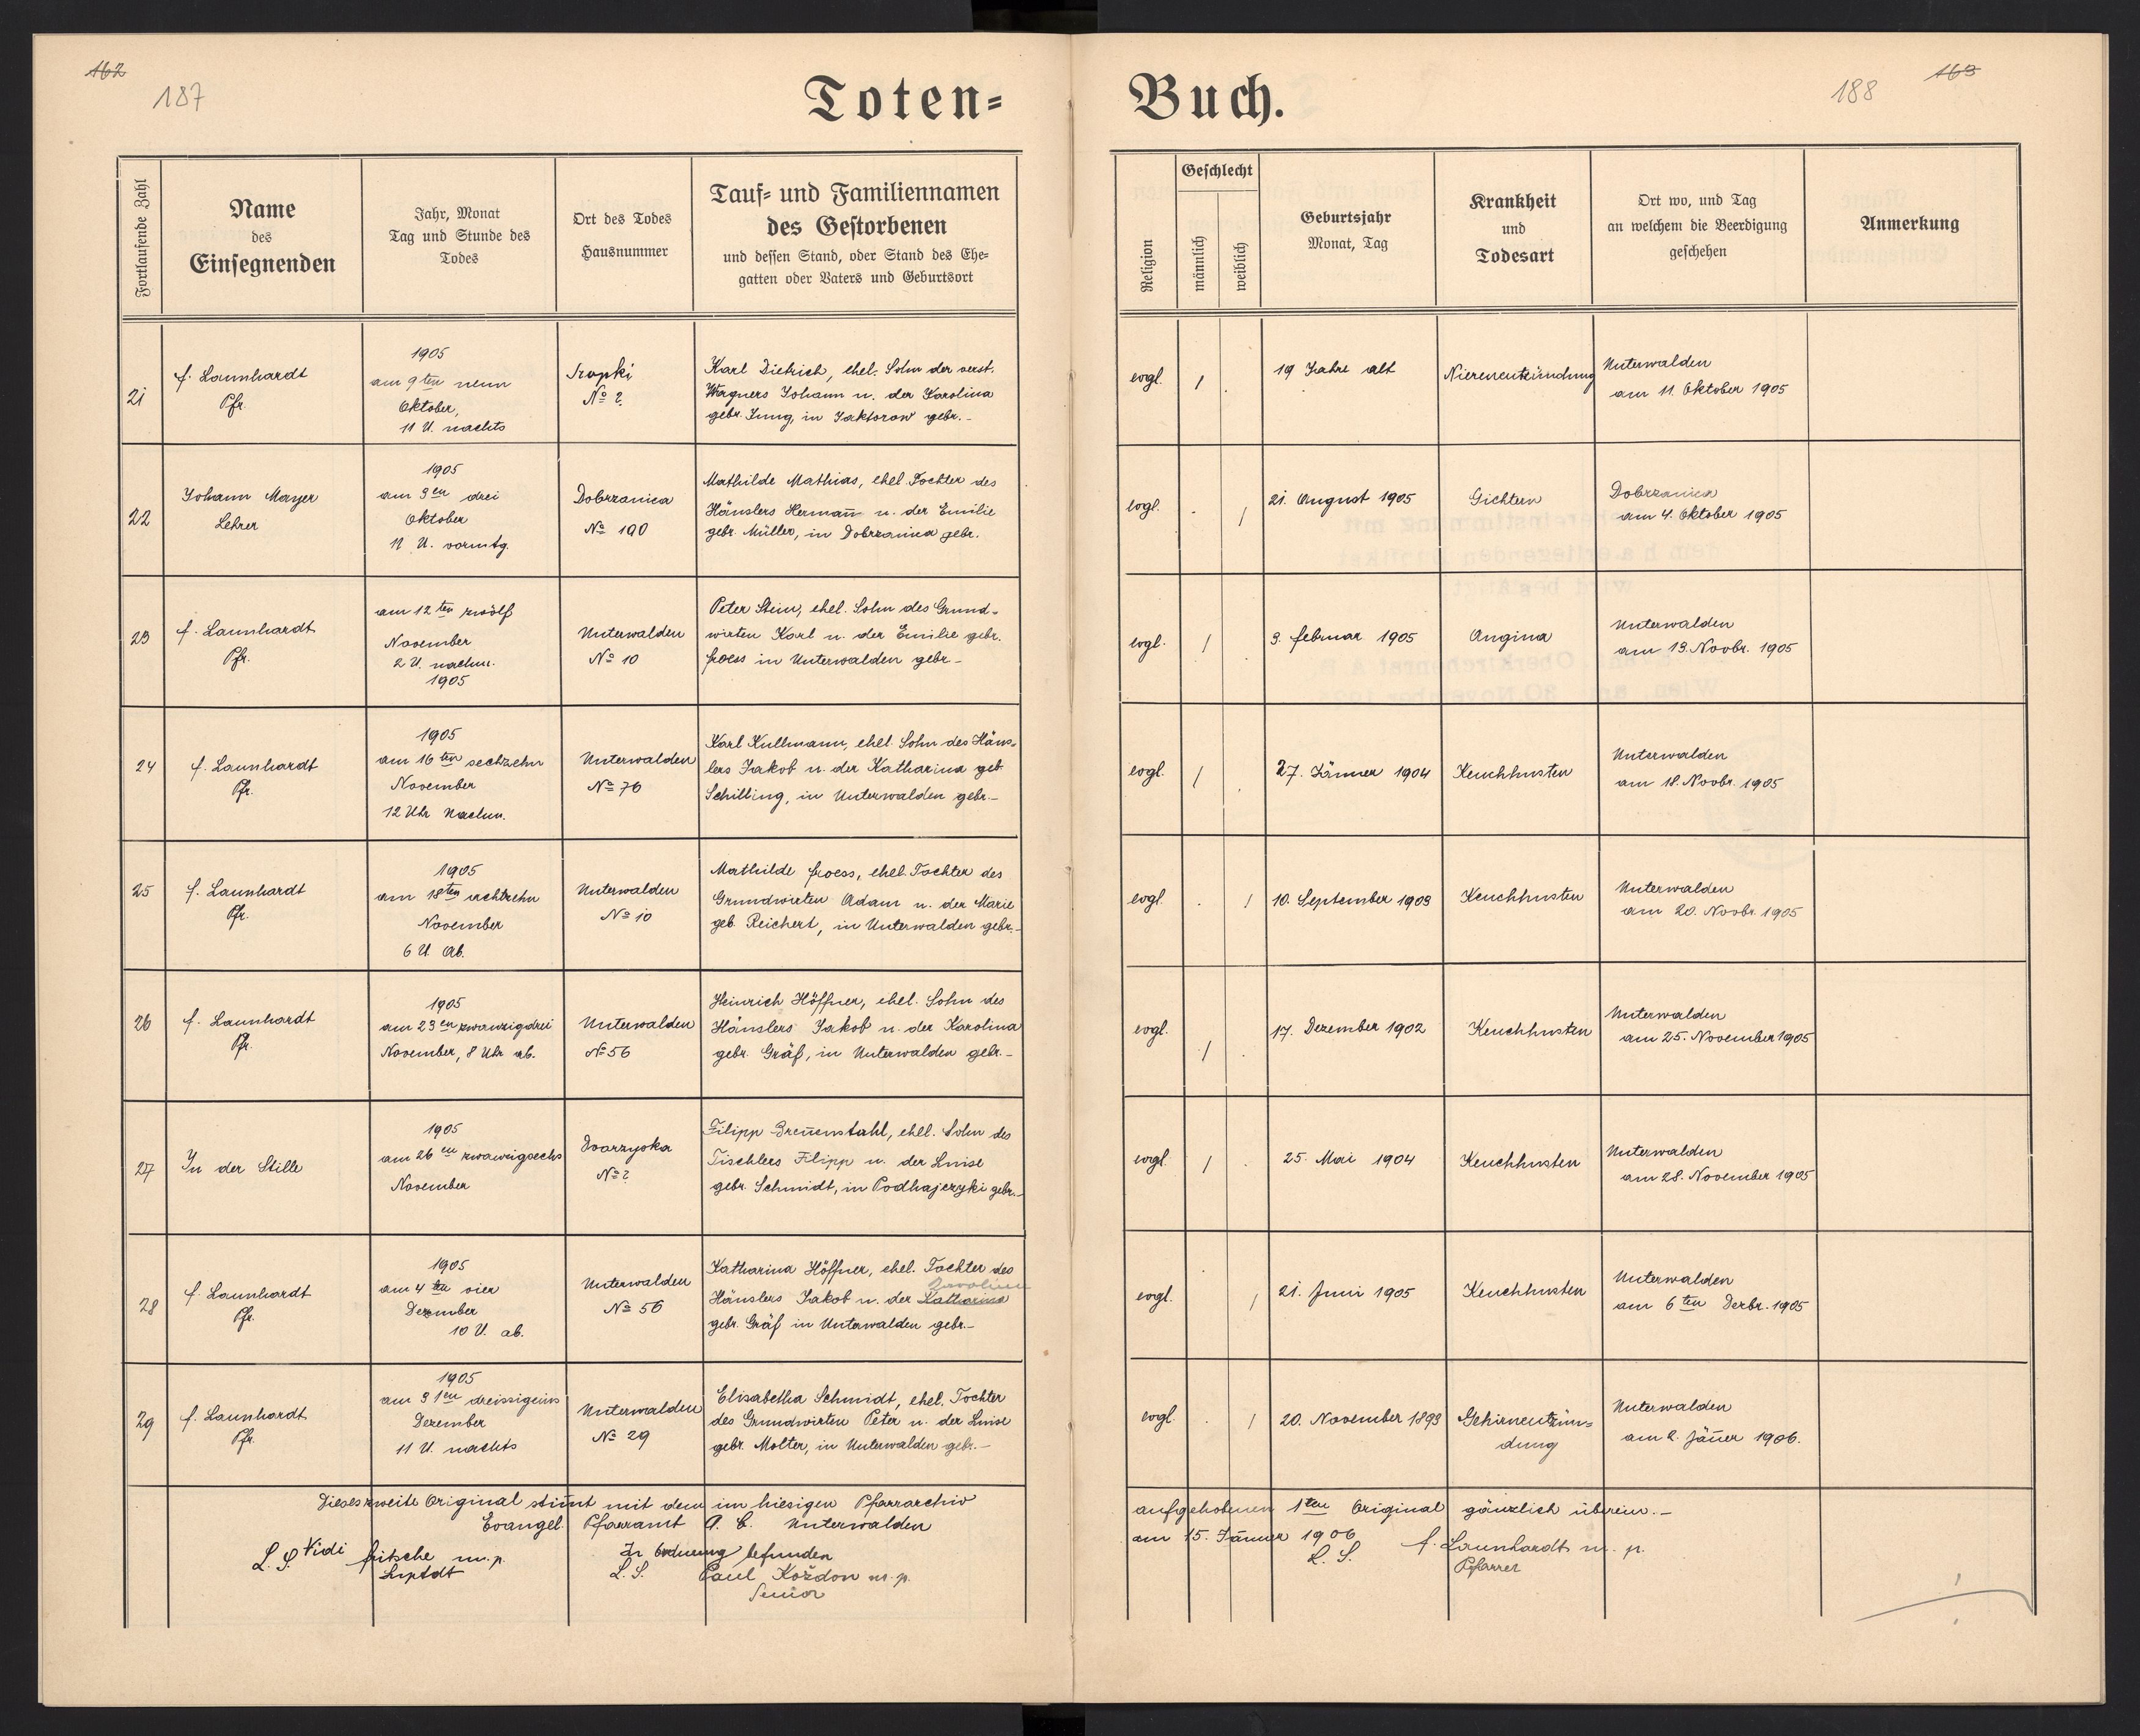 162
187
Toten=
Buch.
188
163
Fortlaufende Zahl
Name
des
Einsegnenden
Jahr, Monat
Tag und Stunde des
Todes
Ort des Todes
Hausnummer
Tauf= und Familiennamen
des Gestorbenen
und dessen Stand, oder Stand des Ehe=
gatten oder Vaters und Geburtsort
Religion
Geschlecht
männlich
weiblich
Geburtsjahr
Monat, Tag
Krankheit
und
Todesart
Ort wo, und Tag
an welchem die Beerdigung
geschehen
Anmerkung
21
f. Launhardt
Pfr.
1905
am 9ten neun
Oktober,
11 U. nachts
No ?
Karl Dietrich, ehel. Sohn der verst.
Wagners Johann u. der Karolina
gebr. Jung, in Jaktorow gebr.-
evgl.
/
.
19 Jahre alt
Nierenentzündung
Unterwalden
am 11. Oktober 1905
22
Johann Mayer
Lehrer
1905
am 3en drei
Oktober
11 U. vormtg.
Dobrzanica
No 190
Mathilde Mathias, ehel. Tochter des
Häuslers Hermañ u. der Emilie
gebr. Müller, in Dobrzanica gebr.
evgl.
.
/
21. August 1905
Gichtern
Dobrzanica
am 4. Oktober 1905
23
f. Launhardt
Pfr.
am 12ten zwölf
November
2 U. nachm.
1905
Unterwalden
No 10
Peter Stein, ehel. Sohn des Grund-
wirten Karl u. der Emilie gebr.
froess in Unterwalden gebr-
evgl.
/
.
3. februar 1905
Angina
Unterwalden
am 13. Novbr. 1905
24
f. Launhardt
Pfr.
1905
am 16ten sechzehn
November
12 Uhr Nachm.
Unterwalden
No 76
Karl Kullmann, ehel. Sohn des Häus-
lers Jakob u. der Katharina geb.
Schilling, in Unterwalden gebr.-
evgl.
/
.
27. Jänner 1904
Keuchhusten
Unterwalden
am 18. Novbr. 1905
25
f. Launhardt
Pfr.
1905
am 18ten achtzehn
November
6 U. Ab.
Unterwalden
No 10
Mathilde froess, ehel. Tochter des
Grundwirten Adam u. der Marie
geb. Reichert, in Unterwalden gebr.-
evgl.
.
/
10. September 1903
Keuchhusten
Unterwalden
am 20. Novbr. 1905
26
f. Launhardt
Pfr.
1905
am 23en zwanzigdrei
November, 8 Uhr ab.
Unterwalden
No 56
Heinrich Höffner, ehel. Sohn des
Häuslers Jakob u. der Karolina
gebr. Gräf, in Unterwalden gebr.-
evgl.
/
.
17. Dezember 1902
Keuchhusten
Unterwalden
am 25. November 1905
27
In der Stille
1905
am 26en zwanzigsechs
November
Dworzyska
No ?
Filipp Breñenstahl, ehel. Sohn des
Tischlers Filipp u. der Luise
gebr. Schmidt, in Podhajczyki gebr.-
evgl.
/
.
25. Mai 1904
Keuchhusten
Unterwalden
am 28. November 1905
28
f. Launhardt
Pfr.
1905
am 4ten vier
Dezember
10 U. ab.
Unterwalden
No 56
Katharina Höffner, ehel. Tochter des
Karolina
Häuslers Jakob u. der Katharina
gebr. Gräf in Unterwalden gebr.-
evgl.
.
/
21. Juni 1905
Keuchhusten
Unterwalden
am 6ten Dezbr. 1905
29
f. Launhardt
Pfr.
1905
am 31en dreissigeins
Dezember
11 U. nachts
Unterwalden
No 29
Elisabetha Schmidt, ehel. Tochter
des Grundwirten Peter u. der Luise
gebr. Molter, in Unterwalden gebr.-
evgl.
.
/
20. November 1893
Gehirnentzün=
dung
Unterwalden
am 2. Jäñer 1906.
Dieses zweite Original stim̃t mit dem im hiesigen Pfarrarchiv
aufgehobenen 1ten Original gänzlich überein.-
Evangel. Pfarramt A. C. Unterwalden
am 15. Jänner 1906
L. S. Vidi fritsche m. p.
In Ordnung befunden
L. S. f. Launhardt m. p.
Pfarrer
L. S. Paul Koždon m. p.
Senior